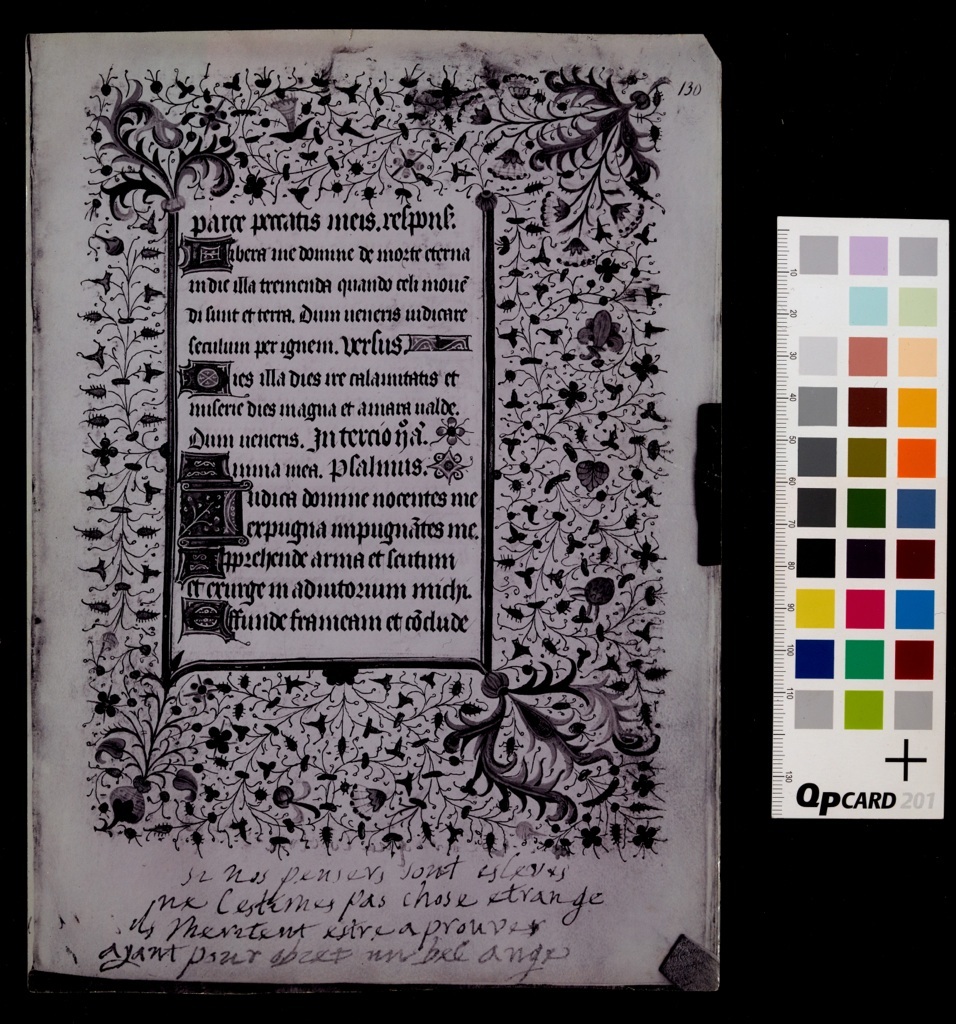 130
parce peccatis meis. respons.
Libera me domine de morte eterna
in die illa tremenda quando celi mouē
di sunt et terra. Dum ueneris iudicare
seculum per ignem. Versus.
Dies illa dies ire calamitatis et
miserie dies magna et amara ualde.
Dum ueneris. In tercio
Anima mea. Psalmus.
Iudica domine nocentes me
expugna impugnātes me.
Apprehende arma et scutum
et exurge in adiutorium michi.
Effunde frameam et cōclude
si nos pensers sont esleves
ne l'estimes pas chose etrange
ils Meritent estre aprouves
ayant pour obiet un bel ange
10
20
30
40
50
60
70
80
90
100
110
130
QPCARD 201